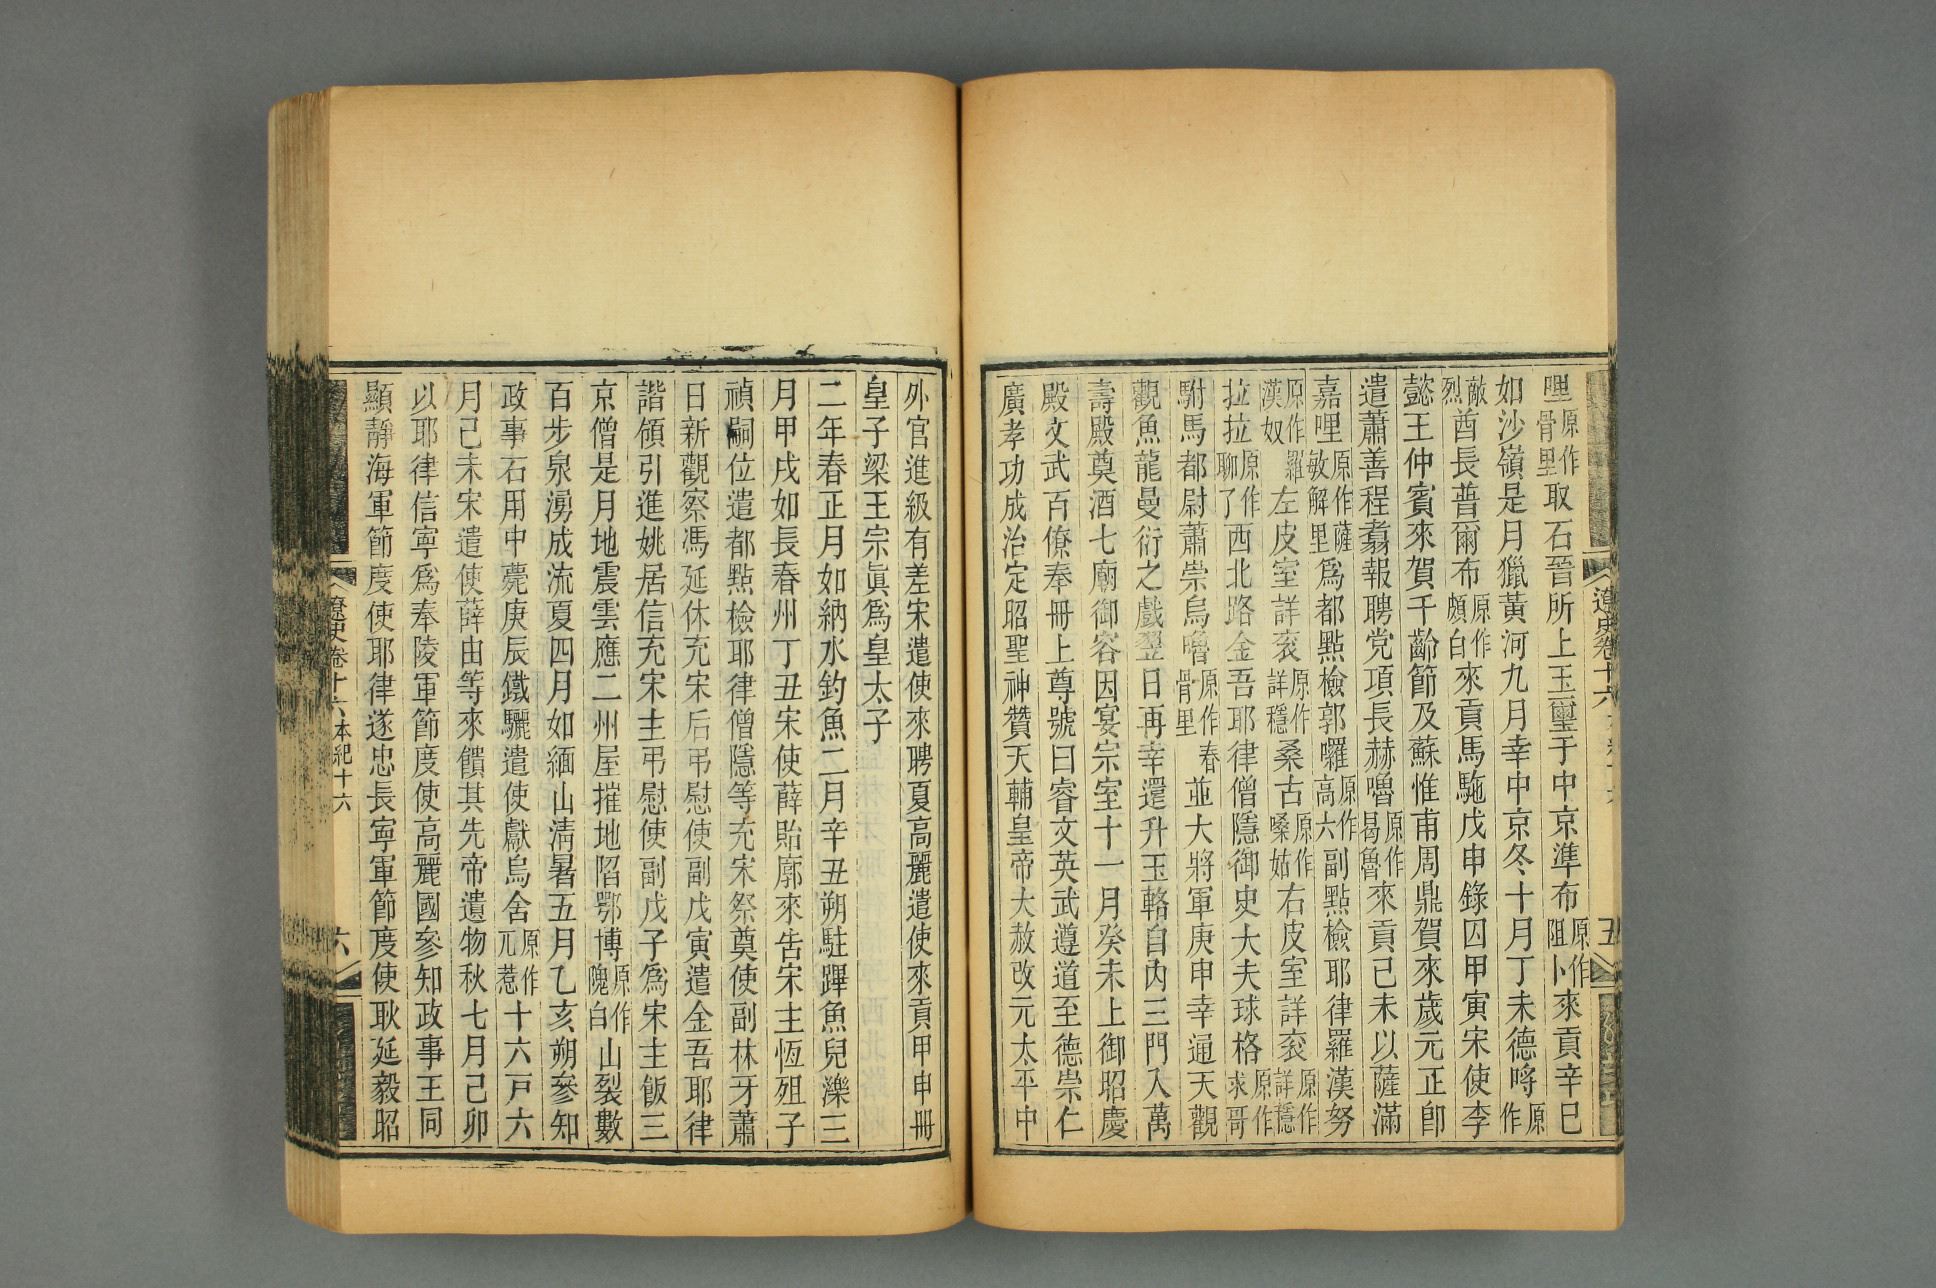 遼史卷十六
五
哩原作骨里取石晉所上玉璽于中京準布原作阻卜來貢辛巳
如沙嶺是月獵黃河九月幸中京冬十月丁未德哷原作
敵烈酋長普爾布原作頗白來貢馬駞戊申錄囚甲寅宋使李
懿王仲賓來賀千齡節及蘇惟甫周鼎賀來歲元正卽
遣蕭善程翥報聘党項長赫嚕原作曷魯來貢己未以薩滿
嘉哩原作薩敏解里爲都點檢郭囉原作高六副點檢耶律羅漢努
原作羅漢奴左皮室詳衮原作詳穩桑古原作嗓姑右皮室詳衮原作詳穩
拉拉原作聊了西北路金吾耶律僧隱御史大夫球格原作求哥
駙馬都尉蕭崇烏嚕原作骨里春並大將軍庚申幸通天觀
觀魚龍曼衍之戲翌日再幸還升玉輅自內三門入萬
壽殿奠酒七廟御容因宴宗室十一月癸未上御昭慶
殿文武百僚奉冊上尊號曰睿文英武遵道至德崇仁
廣孝功成治定昭聖神贊天輔皇帝大赦改元太平中
外官進級有差宋遣使來聘夏高麗遣使來貢甲申冊
皇子梁王宗眞爲皇太子
二年春正月如納水釣魚二月辛丑朔駐蹕魚兒濼三
月甲戌如長春州丁丑宋使薛貽廓來告宋主恆殂子
禎嗣位遣都點檢耶律僧隱等充宋祭奠使副林牙蕭
日新觀察馮延休充宋后弔慰使副戊寅遣金吾耶律
諧領引進姚居信充宋主弔慰使副戊子爲宋主飯三
京僧是月地震雲應二州屋摧地陷鄂博原作隗白山裂數
百步泉湧成流夏四月如緬山淸暑五月乙亥朔參知
政事石用中薨庚辰鐵驪遣使獻烏舍原作兀惹十六戸六
月己未宋遣使薛由等來饋其先帝遺物秋七月己卯
以耶律信寧爲奉陵軍節度使高麗國參知政事王同
顯靜海軍節度使耶律遂忠長寧軍節度使耿延毅昭
遼史卷十六 本紀十六
六